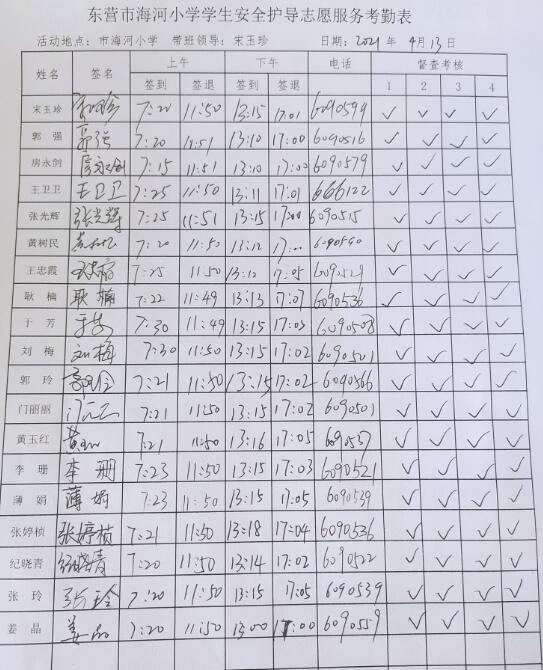 东营市海河小学学生安全护导志愿服务考勤表
活动地点：市海河小学 带班领导：宋玉珍 日期：2021年4月13日
姓名 签名 上午 下午 电话 督查考核
签到 签退 签到 签退 1 2 3 4
宋玉珍 7:20 11:50 13:15 17:01 6090599 ✓ ✓ ✓ ✓
郭强 郭强 7:20 11:51 13:10 17:00 6090516 ✓ ✓ ✓ ✓
房永剑 房永剑 7:15 11:51 13:10 17:02 6090579 ✓ ✓ ✓ ✓
王卫卫 王卫卫 7:25 11:50 13:11 17:01 666122 ✓ ✓ ✓ ✓
张光辉 张光辉 7:25 11:51 13:15 17:00 6090515 ✓ ✓ ✓ ✓
黄树民 7:20 11:50 17:00 6090590 ✓ ✓ ✓ ✓
王忠霞 7:25 11:50 13:12 17:05 ✓ ✓ ✓ ✓
耿楠 耿楠 7:22 11:49 13:13 17:07 6090536 ✓ ✓ ✓ ✓
于芳 于芳 7:30 11:49 13:15 17:03 6090508 ✓ ✓ ✓ ✓
刘梅 刘梅 7:30 11:50 13:15 17:02 6090501 ✓ ✓ ✓ ✓
郭玲 7:21 11:50 13:15 17:02 6090566 ✓ ✓ ✓ ✓
门丽丽 7:21 11:50 13:15 17:02 6090501 ✓ ✓ ✓ ✓
黄玉红 7:21 11:50 13:16 17:05 6090537 ✓ ✓ ✓ ✓
李珊 李珊 7:23 11:50 13:15 17:03 6090521 ✓ ✓ ✓ ✓
薄娟 薄娟 7:23 11:50 13:15 17:05 6090539 ✓ ✓ ✓ ✓
张婷桢 张婷桢 7:21 11:50 13:18 17:04 6090536 ✓ ✓ ✓ ✓
纪晓青 纪晓青 7:20 11:50 13:14 17:02 6090522 ✓ ✓ ✓ ✓
张玲 张玲 7:20 11:50 13:15 17:05 6090539 ✓ ✓ ✓ ✓
姜晶 姜晶 7:20 11:50 13:00 17:00 6090559 ✓ ✓ ✓ ✓